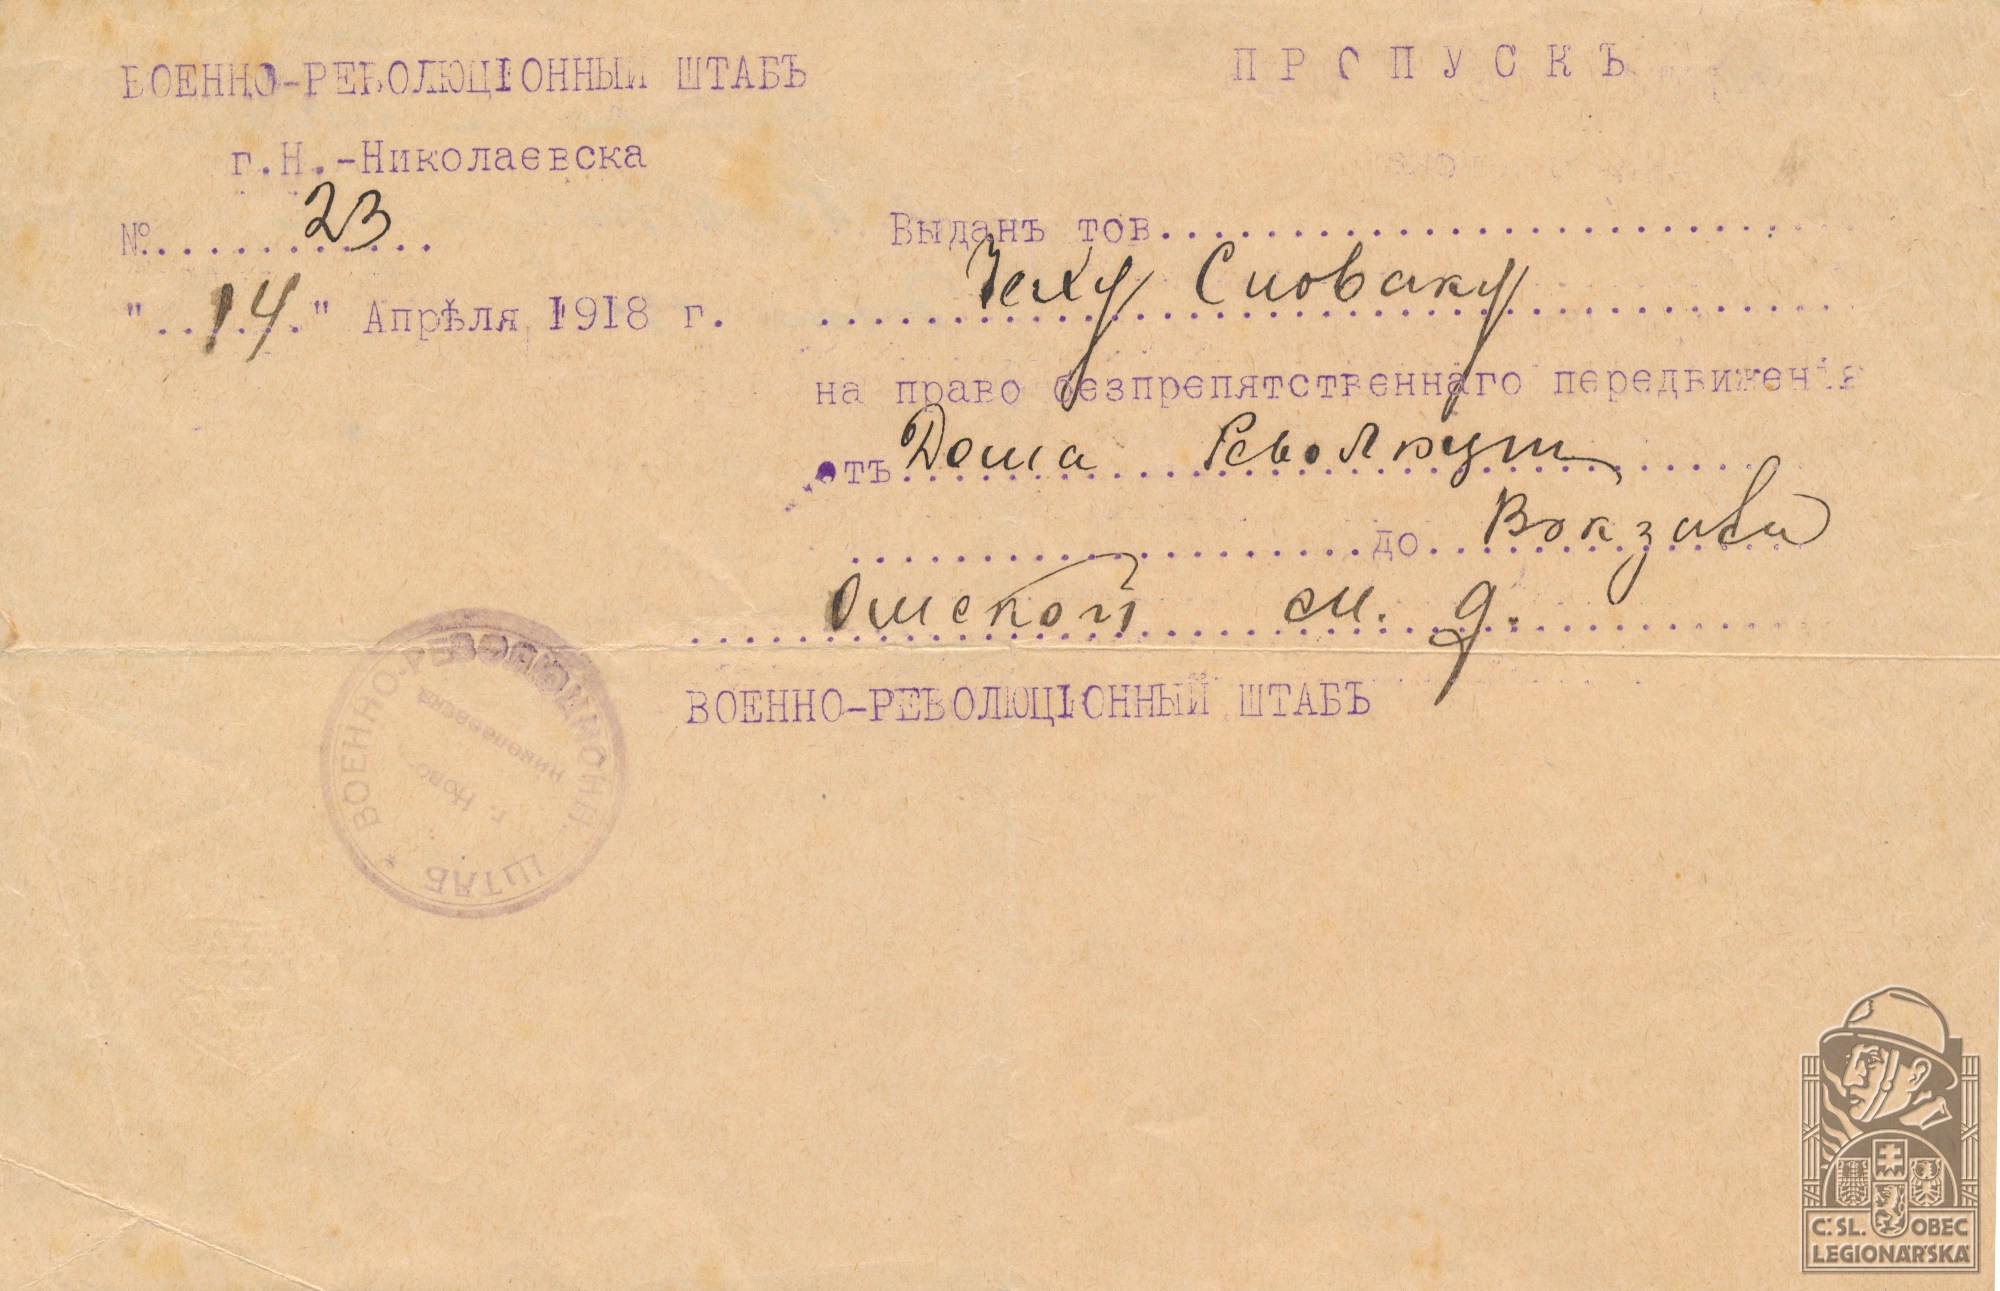 ВОЕННО-РЕВОЛЮЦІОННЫЙ ШТАБЪ
г.Н.-Николаевска
№ 23
"14" Апрѣля 1918 г.
ПРОПУСКЪ
Выданъ тов.
Чеху Словаку
на право безпрепятственнаго передвиженія
отъ Дома Революціи
до Вокзала
Омской ж. д.
ВОЕННО-РЕВОЛЮЦІОННЫЙ ШТАБЪ
ВОЕННО-РЕВОЛЮЦИОНН. ШТАБ
г. Ново-
николаевска
Č.SL. OBEC
LEGIONÁŘSKÁ